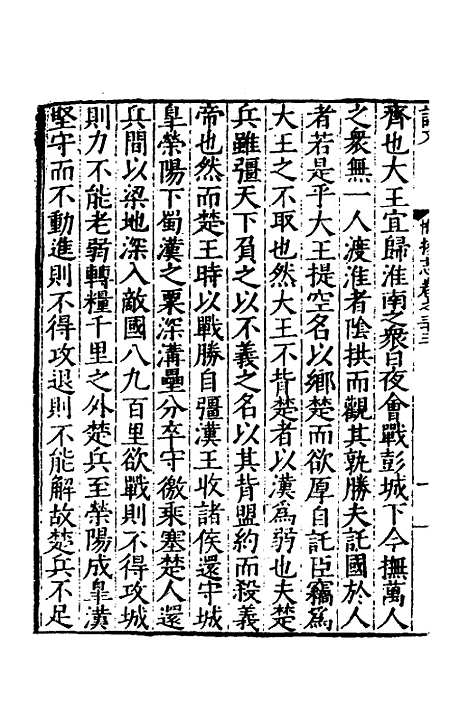 齊也大王宜歸淮南之衆日夜會戰彭城下今撫萬人
之衆無一人渡淮者陰拱而觀其孰勝夫託國於人
者若是乎大王提空名以鄉楚而欲厚自託臣竊爲
大王之不取也然大王不背楚者以漢爲弱也夫楚
兵雖彊天下負之以不義之名以其背盟約而殺義
帝也然而楚王時以戰勝自彊漢王收諸侯還守城
皐榮陽下蜀漢之粟深溝壘分卒守徼乘塞楚人還
兵間以梁地深入敵國八九百里欲戰則不得攻城
則力不能老弱轉糧千里之外楚兵至榮陽成皐漢
堅守而不動進則不得攻退則不能解故楚兵不足